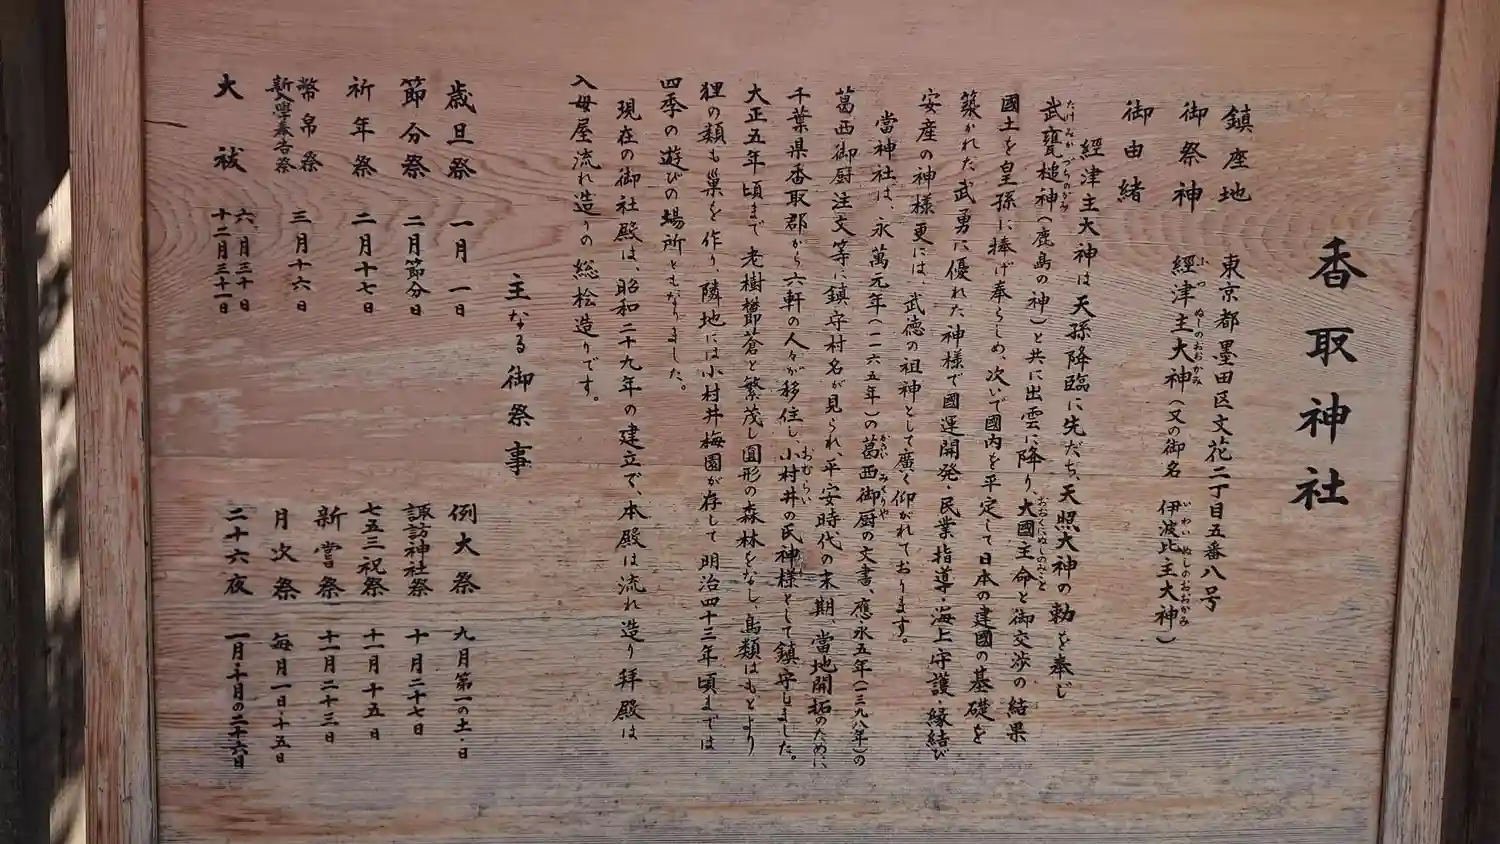 香取神社
鎮座地 東京都墨田区文花二丁目五番八号
御祭神 經津主大神(又の御名 伊波比主大神)
御由緒
經津主大神は天孫降臨に先だち、天照大神の勅を奉じ
武甕槌神(鹿島の神)と共に出雲に降り、大國主命と御交渉の結果
國土を皇孫に捧げ奉らしめ、次いで國内を平定して日本の建國の基礎を
築かれた武勇に優れた神様で國運開発・民業指導・海上守護・縁結び
安産の神様更には、武徳の祖神として廣く仰がれております。
當神社は、永萬元年(一一六五年)の葛西御厨の文書、應永五年(一三九八年)の
葛西御厨注文等に鎮守村名が見られ、平安時代の末期、當地開拓のために
千葉県香取郡から六軒の人々が移住し、小村井の氏神様として鎮守しました。
大正五年頃まで老樹欝蒼と繁茂し圓形の森林をなし、鳥類はもとより
狸の類も巣を作り、隣地には小村井梅園が存して明治四十三年頃までは
四季の遊びの場所ともなりました。
現在の御社殿は、昭和二十九年の建立で、本殿は流れ造り拝殿は
入母屋流れ造りの総桧造りです。
主なる御祭事
歳旦祭 一月一日
節分祭 二月節分日
祈年祭 二月十七日
幣帛祭
新入學奉告祭 三月十六日
大祓 六月三十日
十二月三十一日
例大祭 九月第一の土・日
諏訪神社祭 十月二十七日
七五三祝祭 十一月十五日
新嘗祭 十一月二十三日
月次祭 毎月一日十五日
二十六夜 一月・十月の二十六日